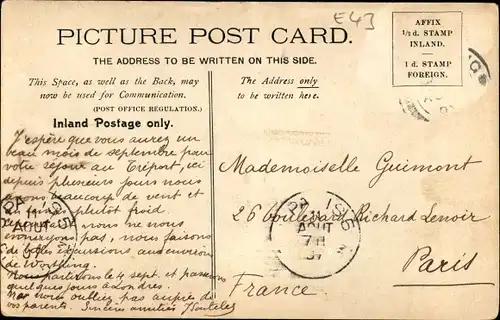 E43
PICTURE POST CARD.
THE ADDRESS TO BE WRITTEN ON THIS SIDE.
AFFIX
½ d. STAMP
INLAND.
1 d. STAMP
FOREIGN.
This Space, as well as the Back, may
now be used for Communication.
(POST OFFICE REGULATION.)
Inland Postage only.
J'espère que vous aurez un
beau mois de septembre pour
votre séjour au Tréport, ici
depuis plusieurs jours nous
avons beaucoup de vent et
un temps plutôt froid
nous ne nous
ennuyons pas, nous faisons
de excursions aux environs
de Worthing.
Nous partirons le 4 sept. et passerons
quelques jours à Londres.
nous oubliez pas auprès de
vos parents. Sincères amitiés
The Address only
to be written here.
Mademoiselle Guimont
26 boulevard Richard Lenoir
Paris
France.
AOUT
AOUT
7 H